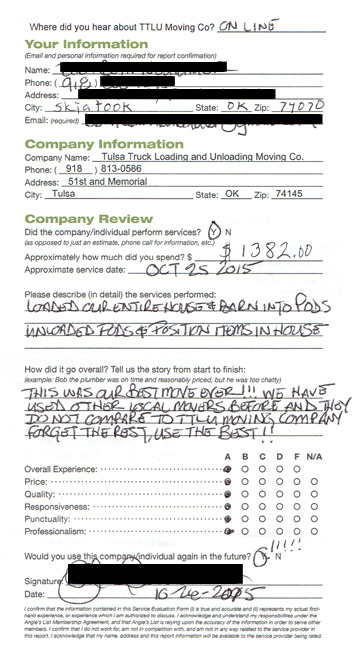 Where did you hear about TTLU Moving Co? ON LINE
Your Information
(Email and personal information required for report confirmation)
Name:
Phone: ( 918 )
Address:
City: Skiatook State: OK Zip: 74070
Email: (required)
Company Information
Company Name: Tulsa Truck Loading and Unloading Moving Co.
Phone: ( 918 ) 813-0586
Address: 51st and Memorial
City: Tulsa State: OK Zip: 74145
Company Review
Did the company/individual perform services? Y N
(as opposed to just an estimate, phone call for information, etc.)
Approximately how much did you spend? $ $1382.00
Approximate service date: OCT 25 2015
Please describe (in detail) the services performed:
LOADED OUR ENTIRE HOUSE & BARN INTO PODS
UNLOADED PODS & POSITION ITEMS IN HOUSE
How did it go overall? Tell us the story from start to finish:
(example: Bob the plumber was on time and reasonably priced, but he was too chatty)
THIS WAS OUR BEST MOVE EVER!!! WE HAVE
USED OTHER LOCAL MOVERS BEFORE AND THEY
DO NOT COMPARE TO TTLU MOVING COMPANY
FORGET THE REST, USE THE BEST!!
A B C D F N/A
Overall Experience:
Price:
Quality:
Responsiveness:
Punctuality:
Professionalism:
Would you use this company/individual again in the future? Y N !!!!!
Signature:
Date:
I confirm that the information contained in this Service Evaluation Form (i) is true and accurate and (ii) represents my actual first-
hand experience, or experience which I am authorized to discuss. I acknowledge and understand my responsibilities under the
Angie's List Membership Agreement, and that Angie's List is relying upon the accuracy of the information in order to serve other
members. I confirm that I do not work for, am not in competition with, and not in any way related to the service provider in
this report. I acknowledge that my name, address and this report information will be available to the service provider being rated.